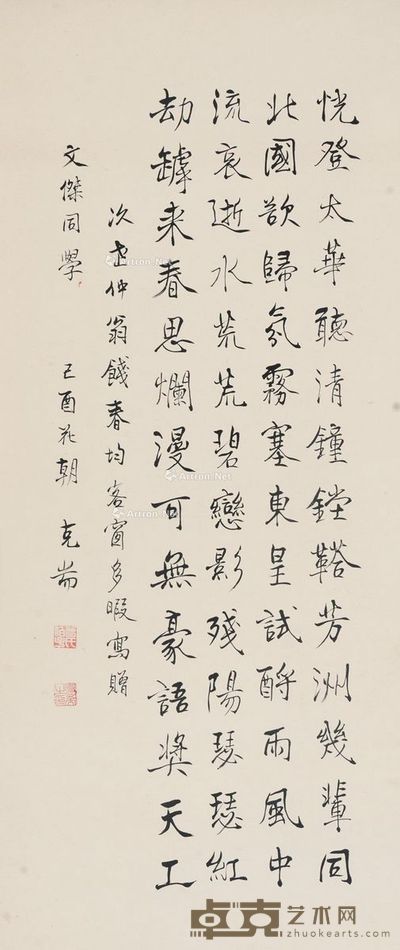 恍登太華聽清鐘鏜鞳芳洲幾輩同
北國欲歸氛霧塞東皇試酹雨風中
流哀逝水荒荒碧戀影殘陽瑟瑟紅
劫罅来春思爛漫可無豪語奬天工
次仲翁餞春均客窗多暇寫贈
文傑同學 己酉花朝 克耑
Artron.Net
卓克艺术网
www.zhuokearts.com